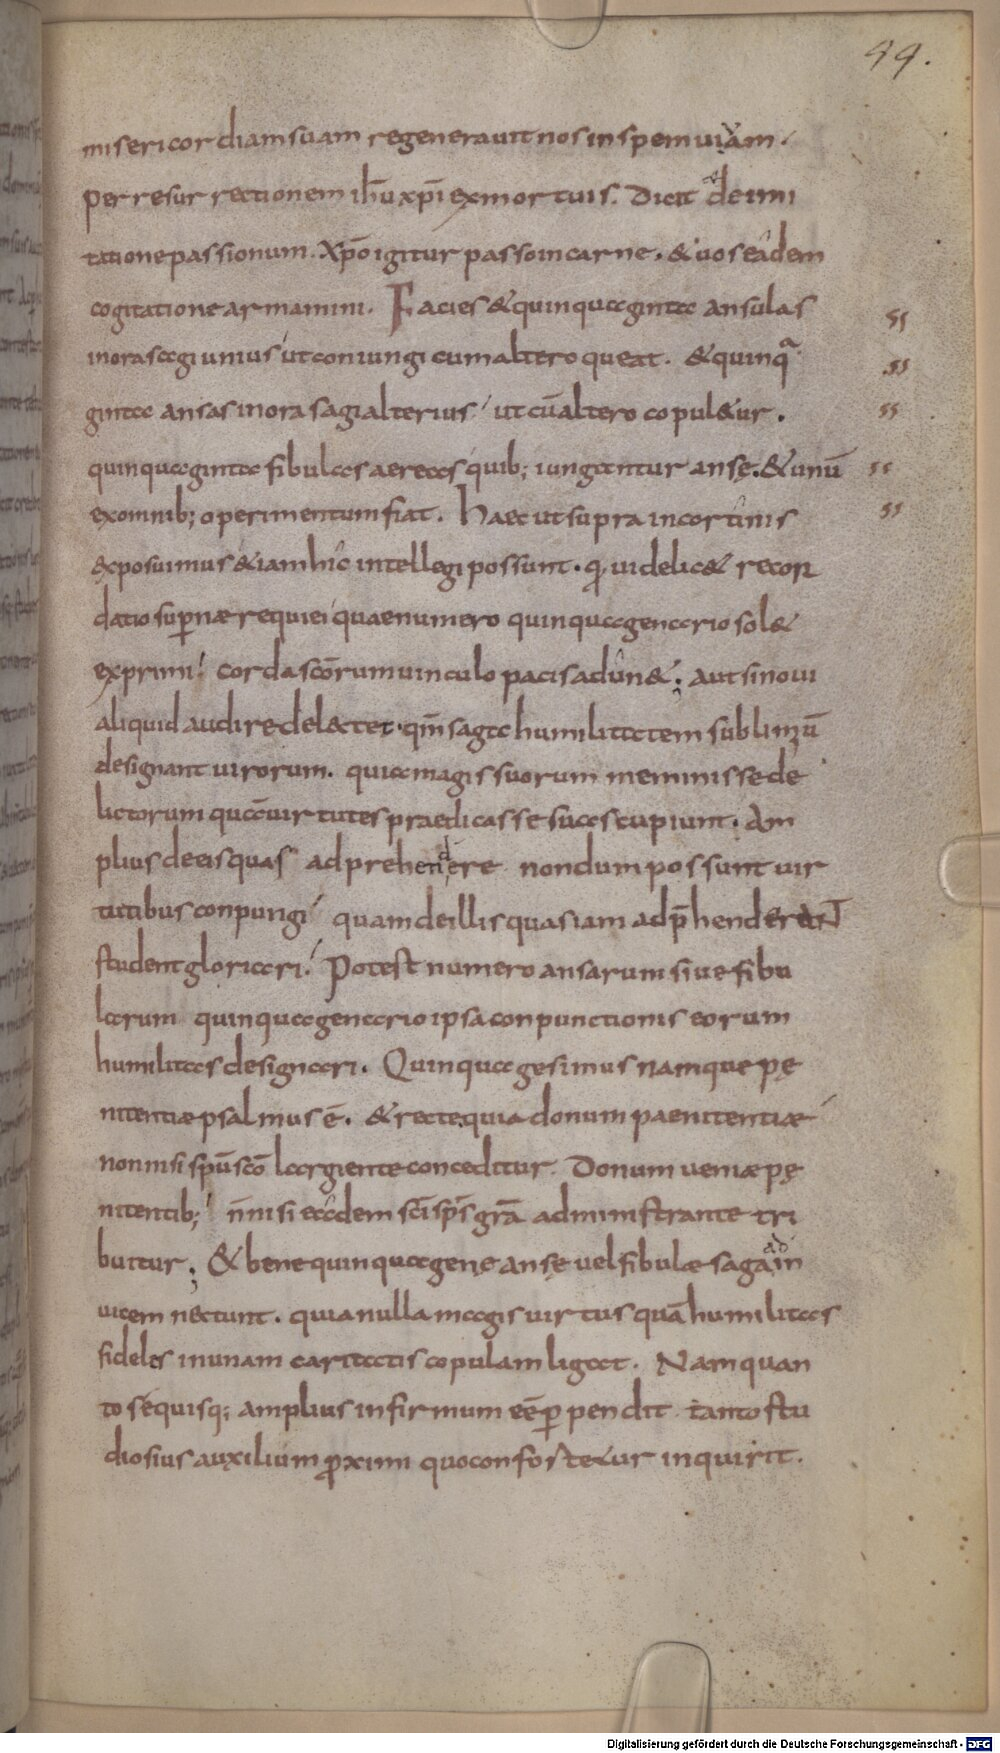 99.
misericordiam suam regenerauit nos in spem uiuam.
per resurrectionem ihu xpi ex mortuis. Dicit & de imi
tatione passionum. Xpo igitur passo in carne. & uos eadem
cogitatione armamini. Facies & quinquaginta ansulas
in ora sagi unius ut coniungi cum altero queat. & quinqa
ginta ansas in ora sagi alterius ut cū altero copul&ur.
quinquaginta fibulas aereas quib; iungantur ansę. & unū
ex omnib; operimentum fiat. Haec ut supra in cortinis
exposuimus & iam hic intellegi possunt. q uidelic& recor
datio supnae requiei quae numero quinquagenario sol&
exprimi corda scōrum uinculo pacis adun&; aut si noui
aliquid audire delectet. qm̄ saga humilitatem sublimiū
designant uirorum. quia magis suorum meminisse de
lictorum quā uirtutes praedicasse suas cupiunt. Am
plius de eis quas adprehendere nondum possunt uir
tutibus conpungi quam de illis quas iam adp̄henderunt
student gloriari. Potest numero ansarum siue fibu
larum quinquagenario ipsa conpunctionis eorum
humilitas designari. Quinquagesimus namque pę
nitentiae psalmus ē. & recte quia donum paenitentiae
non nisi spū scō largiente conceditur. Donum ueniae pę
nitentib; n̄ nisi eadem sci sps gra administrante tri
buitur; & bene quinquagenę ansę uel fibulae saga ad in
uicem nectunt. quia nulla magis uirtus quā humilitas
fideles in unam caritatis copulam ligat. Nam quan
to se quisq; amplius infirmum eē ppendit tanto stu
diosius auxilium proximi quo confortetur inquirit.
Digitalisierung gefördert durch die Deutsche Forschungsgemeinschaft - DFG